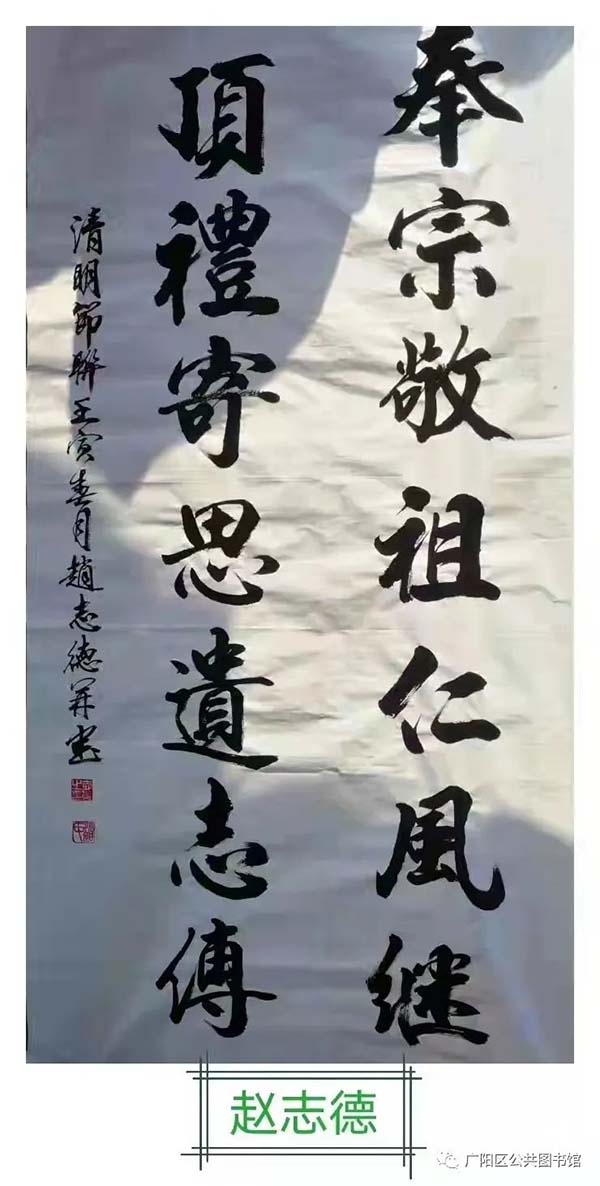 奉宗敬祖仁风继
頂禮寄思遺志傳
清明節聯壬寅春月趙志德并书
赵志德
广阳区公共图书馆